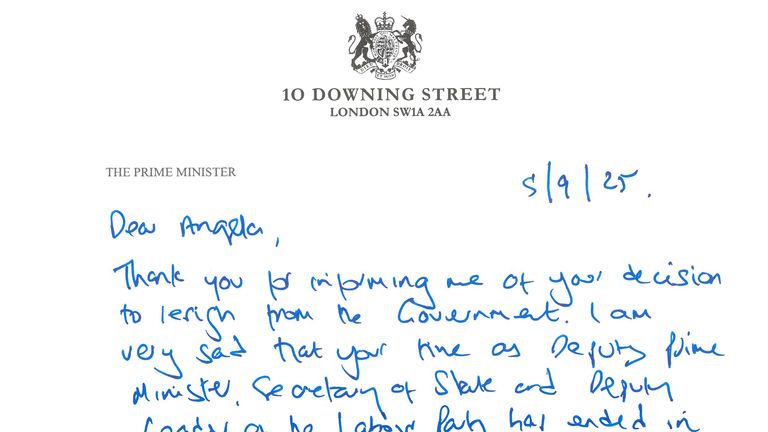 10 DOWNING STREET
LONDON SW1A 2AA
THE PRIME MINISTER
5/9/25.
Dear Angela,
Thank you for informing me of your decision
to resign from the Government. I am
very sad that your time as Deputy Prime
Minister, Secretary of State and Deputy
Leader of the Labour Party has ended in